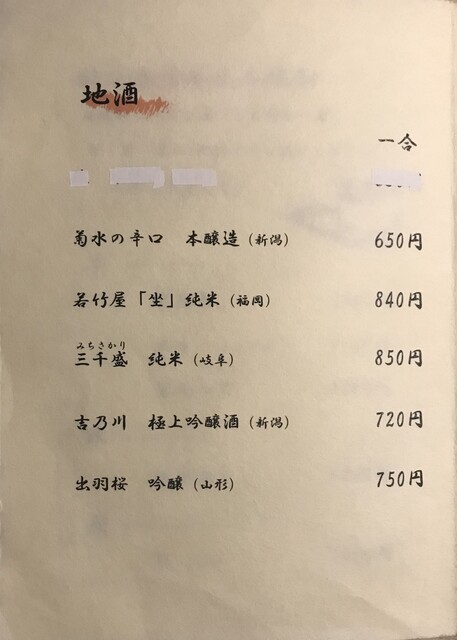 地酒
一合
菊水の辛口 本醸造 (新潟) 650円
若竹屋「坐」純米 (福岡) 840円
みちさかり
三千盛 純米 (岐阜) 850円
吉乃川 極上吟醸酒 (新潟) 720円
出羽桜 吟醸 (山形) 750円